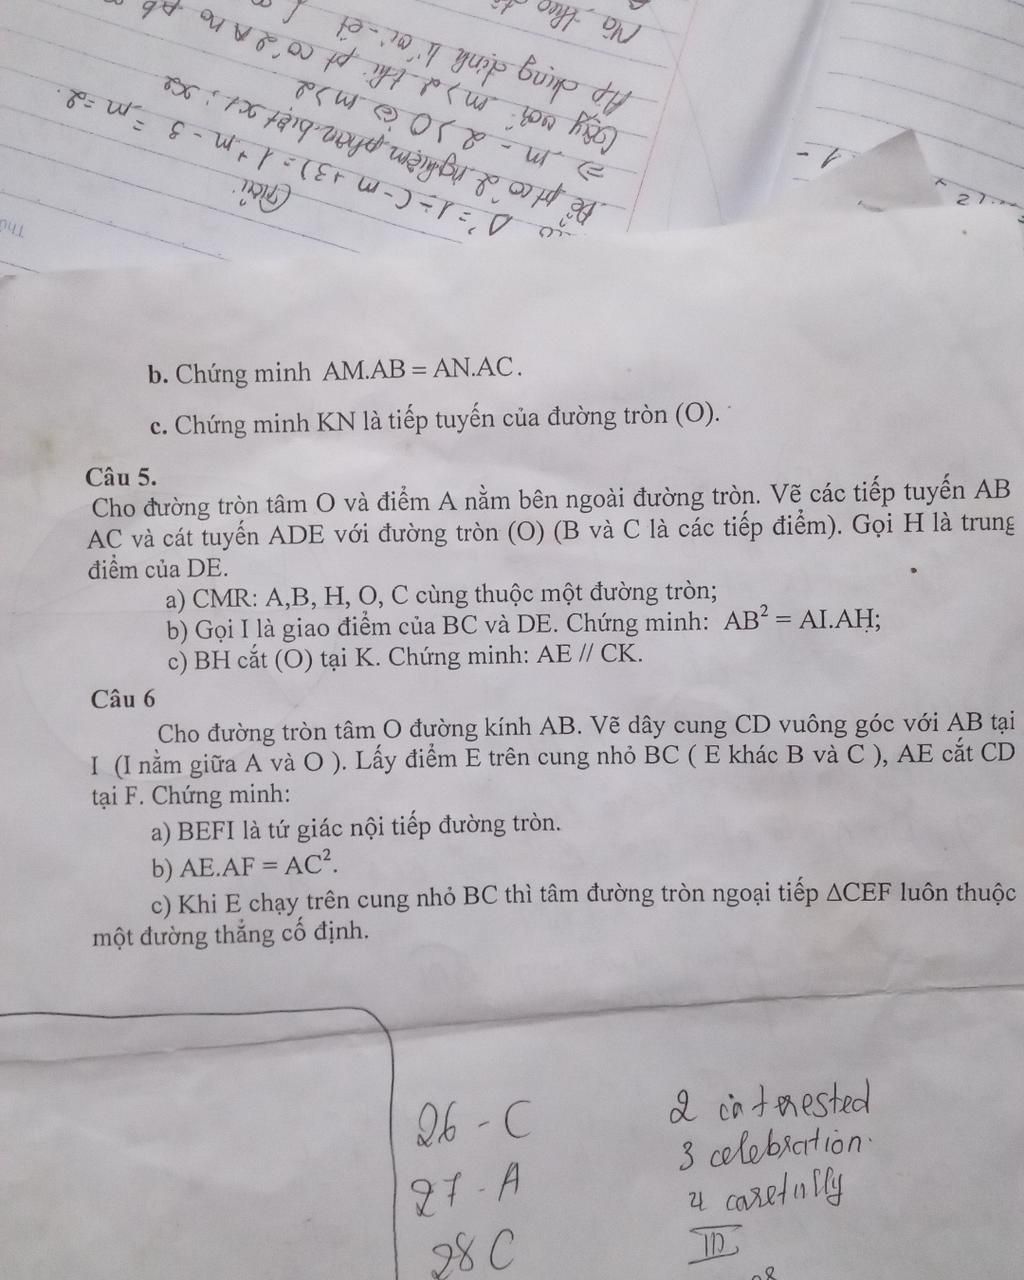 Nà theo
Áp dụng định lí vi-ét
Vậy với m > 2 thì pt có 2 n no pb
⇒ m - 2 > 0 ⇔ m > 2
Để pt có 2 nghiệm phân biệt x1; x2
Δ' = 1 - (-m + 3) = 1 + m - 3 = m - 2.
Giải
b. Chứng minh AM.AB = AN.AC.
c. Chứng minh KN là tiếp tuyến của đường tròn (O).
Câu 5.
Cho đường tròn tâm O và điểm A nằm bên ngoài đường tròn. Vẽ các tiếp tuyến AB
AC và cát tuyến ADE với đường tròn (O) (B và C là các tiếp điểm). Gọi H là trung
điểm của DE.
a) CMR: A,B, H, O, C cùng thuộc một đường tròn;
b) Gọi I là giao điểm của BC và DE. Chứng minh: AB² = AI.AH;
c) BH cắt (O) tại K. Chứng minh: AE // CK.
Câu 6
Cho đường tròn tâm O đường kính AB. Vẽ dây cung CD vuông góc với AB tại
I (I nằm giữa A và O ). Lấy điểm E trên cung nhỏ BC ( E khác B và C ), AE cắt CD
tại F. Chứng minh:
a) BEFI là tứ giác nội tiếp đường tròn.
b) AE.AF = AC².
c) Khi E chạy trên cung nhỏ BC thì tâm đường tròn ngoại tiếp ΔCEF luôn thuộc
một đường thẳng cố định.
26 - C
27 - A
28 C
2 interested
3 celebration.
4 carefully
III